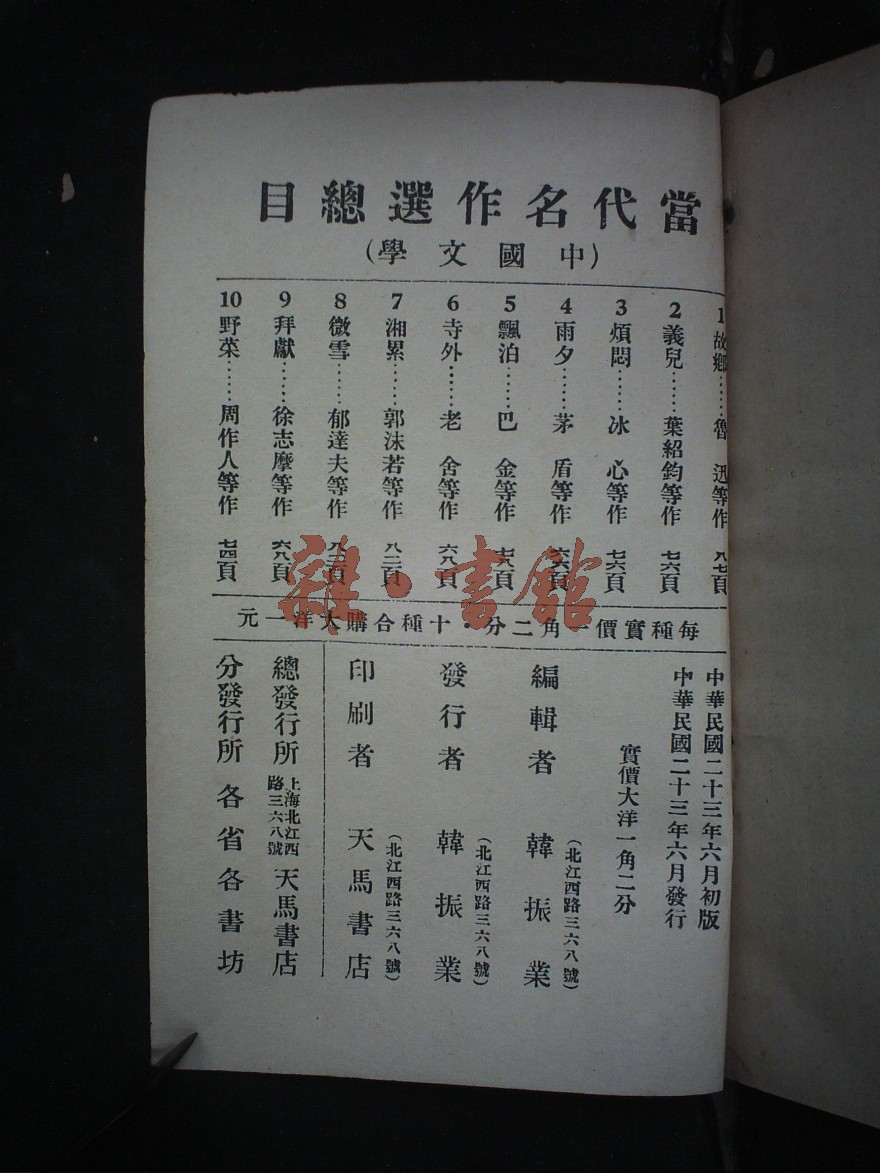 當代名作選總目
(中國文學)
1 故鄉……魯迅等作 八七頁
2 義兒……葉紹鈞等作 七六頁
3 煩悶……冰心等作 七六頁
4 雨夕……茅盾等作 六六頁
5 飄泊……巴金等作 頁
6 寺外……老舍等作 六八頁
7 湘累……郭沫若等作 八二頁
8 微雪……郁達夫等作 頁
9 拜獻……徐志摩等作 六八頁
10 野菜……周作人等作 七四頁
每種實價一角二分·十種合購大洋一元
中華民國二十三年六月初版
中華民國二十三年六月發行
實價大洋一角二分
編輯者 韓振業
(北江西路三六八號)
發行者 韓振業
(北江西路三六八號)
印刷者 天馬書店
(北江西路三六八號)
總發行所 上海北江西路三六八號 天馬書店
分發行所 各省各書坊
雜·書館